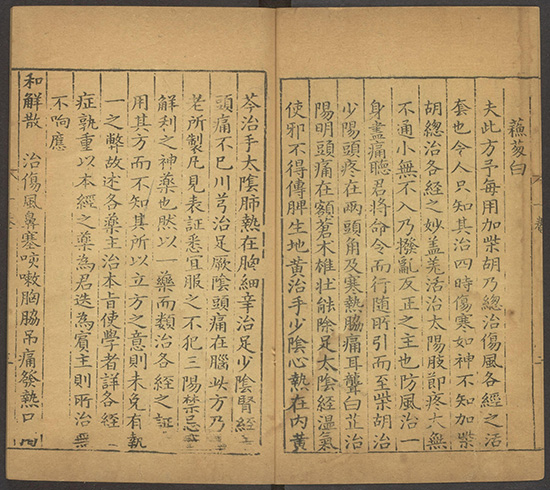 蘓曰
夫此方予每用加柴胡乃總治傷風各經之活
套也令人只知其治四時傷寒如神不知加柴
胡總治各經之妙盖羗活治太陽肢節疼大無
不通小無不入乃撥亂反正之主也防風治一
身盡痛聽君將命令而行隨所引而至柴胡治
少陽頭疼在兩頭角及寒熱脇痛耳聾白芷治
陽明頭痛在額蒼木椎壮能除足太陰經温氣
使邪不得傳脾生地黄治手少陰心熱在内黄
芩治手太陰肺熱在胷細辛治足少陰腎經
頭痛不已川芎治足厥陰頭痛在腦此方乃
老所製凡見表証悉宜服之不犯三陽禁忌
解利之神藥也然以一藥而類治各經之証
用其方而不知其所以立方之意則未免有執
一之弊故述各藥主治本旨使學者詳各經
症孰重以本經之藥為君迭為賓主則所治無
不响應
和解散 治傷風鼻塞咳嗽胸脇吊痛發熱口